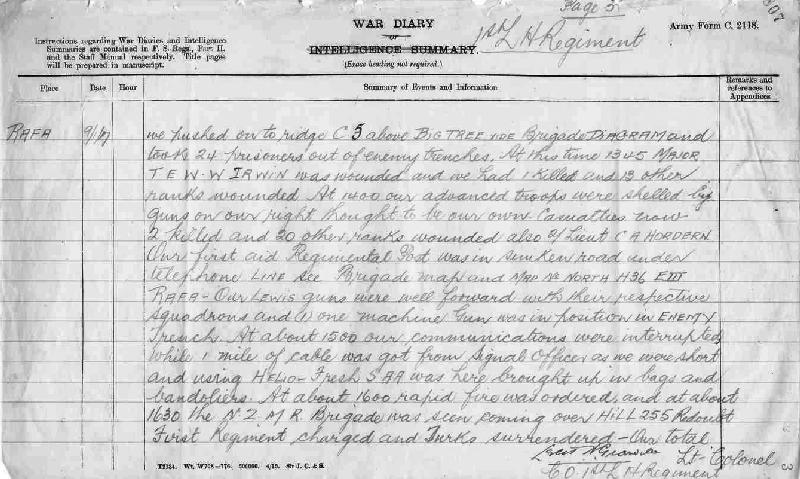 Page 5
WAR DIARY
1st L H Regiment
Army Form C. 2118.
307
OF
INTELLIGENCE SUMMARY.
(Erase heading not required.)
Instructions regarding War Diaries and Intelligence
Summaries are contained in F. S. Regs., Part II.
and the Staff Manual respectively. Title pages
will be prepared in manuscript.
Place Date Hour Summary of Events and Information Remarks and references to Appendices
RAFA 9/1/17 we pushed on to ridge C 5 above BIG TREE vide Brigade DIAGRAM and
took 24 prisoners out of enemy trenches. At this time 1345 MAJOR
T E W. W IRWIN was wounded and we had 1 killed and 13 other
ranks wounded. At 1400 our advanced troops were shelled big
guns on our right thought to be our own Casualties now
2 killed and 20 other ranks wounded also 2/ Lieut C A HORDERN
Our first aid Regimental Post was in sunken road under
telephone LINE see Brigade map and MAP No NORTH H36 EIII
RAFA - Our LEWIS guns were well forward with their respective
squadrons and (1) one machine Gun was in position in ENEMY
Trench. At about 1500 our communications were interrupted
while 1 mile of cable was got from Signal Officer as we were short
and using HELIO - Fresh SAA was here brought up in bags and
bandoliers. At about 1600 rapid fire was ordered and at about
1630 the N.Z.M.R. Brigade was seen coming over HILL 255 Redoubt
First Regiment charged and Turks surrendered - Our total
Lt-Colonel
C.O. 1st L H Regiment
3